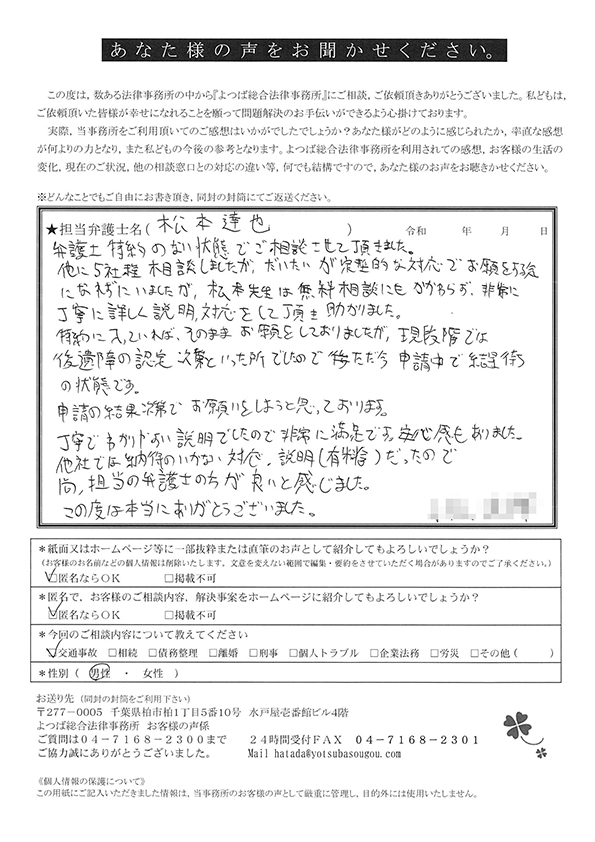 あなた様の声をお聞かせください。
この度は，数ある法律事務所の中から『よつば総合法律事務所』にご相談，ご依頼頂きありがとうございました。私どもは，
ご依頼頂いた皆様が幸せになれることを願って問題解決のお手伝いができるよう心掛けております。
実際，当事務所をご利用頂いてのご感想はいかがでしたでしょうか？あなた様がどのように感じられたか，率直な感想
が何よりの力となり，また私どもの今後の参考となります。よつば総合法律事務所を利用されての感想，お客様の生活の
変化，現在のご状況，他の相談窓口との対応の違い等，何でも結構ですので，あなた様のお声をお聴きかせください。
※どんなことでもご自由にお書き頂き，同封の封筒にてご返送ください。
★担当弁護士名（ 松本達也 ） 令和 年 月 日
弁護士特約のない状態でご相談させて頂きました。
他に5社程相談しましたが，だいたいが定型的な対応でお願する
になれずにいましたが，松本先生は無料相談にもかかわらず，非常に
丁寧に詳しく説明，対応をして頂き助かりました。
特約に入っていれば，そのままお願をしておりましたが，現段階では
後遺障の認定次第といった所でしたので まだ 申請中で結果待
の状態です。
申請の結果次第でお願いをしようと思っております。
丁寧でわかりやすい説明でしたので非常に満足です。安心感もありました。
他社では納得のいかない対応，説明（有料）だったので
尚，担当の弁護士の方が良いと感じました。
この度は本当にありがとうございました。
＊紙面又はホームページ等に一部抜粋または直筆のお声として紹介してもよろしいでしょうか？
（お客様のお名前などの個人情報は削除いたします。文意を変えない範囲で編集・要約をさせていただく場合がありますのでご了承ください。）
☑匿名ならOK □掲載不可
＊匿名で，お客様のご相談内容，解決事案をホームページに紹介してもよろしいでしょうか？
☑匿名ならOK □掲載不可
＊今回のご相談内容について教えてください
☑交通事故 □相続 □債務整理 □離婚 □刑事 □個人トラブル □企業法務 □労災 □その他（ ）
＊性別（ 男性 ・ 女性 ）
お送り先（同封の封筒をご利用下さい）
〒277-0005 千葉県柏市柏1丁目5番10号 水戸屋壱番館ビル4階
よつば総合法律事務所 お客様の声係
ご質問は04-7168-2300まで 24時間受付FAX 04-7168-2301
ご協力誠にありがとうございました。 Mail hatada@yotsubasougou.com
《個人情報の保護について》
この用紙にご記入いただきました情報は，当事務所のお客様の声として厳重に管理し，目的外には使用いたしません。